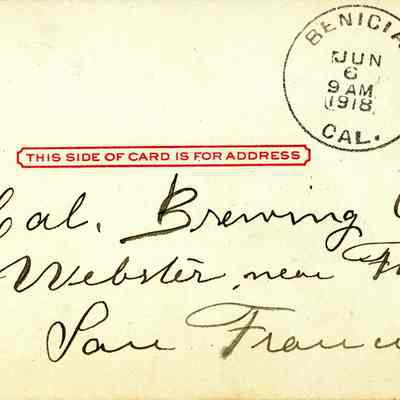 BENICIA
JUN
6
9 AM
1918
CAL.
THIS SIDE OF CARD IS FOR ADDRESS
Cal. Brewing
Webster, near
San